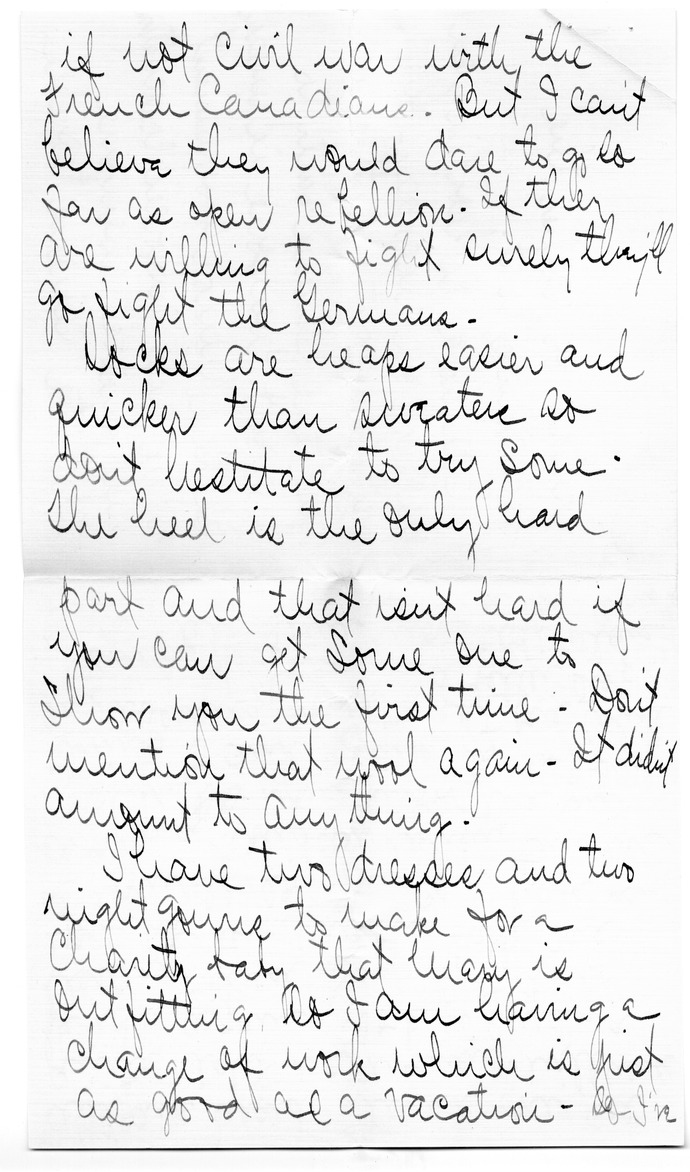 if not civil war with the
French Canadians. But I can't
believe they would dare to go so
far as open rebellion. If they
are willing to fight surely they'll
go fight the Germans.
Socks are heaps easier and
quicker than sweaters so
don't hestitate to try some.
The heel is the only hard
part and that isn't hard if
you can get some one to
show you the first time. Don't
mention that wool again - It didn't
amount to anything.
I have two dresses and two
nightgowns to make for a
Charity baby that Mary is
outfitting. So I am having a
change of work which is just
as good as a vacation - If I've